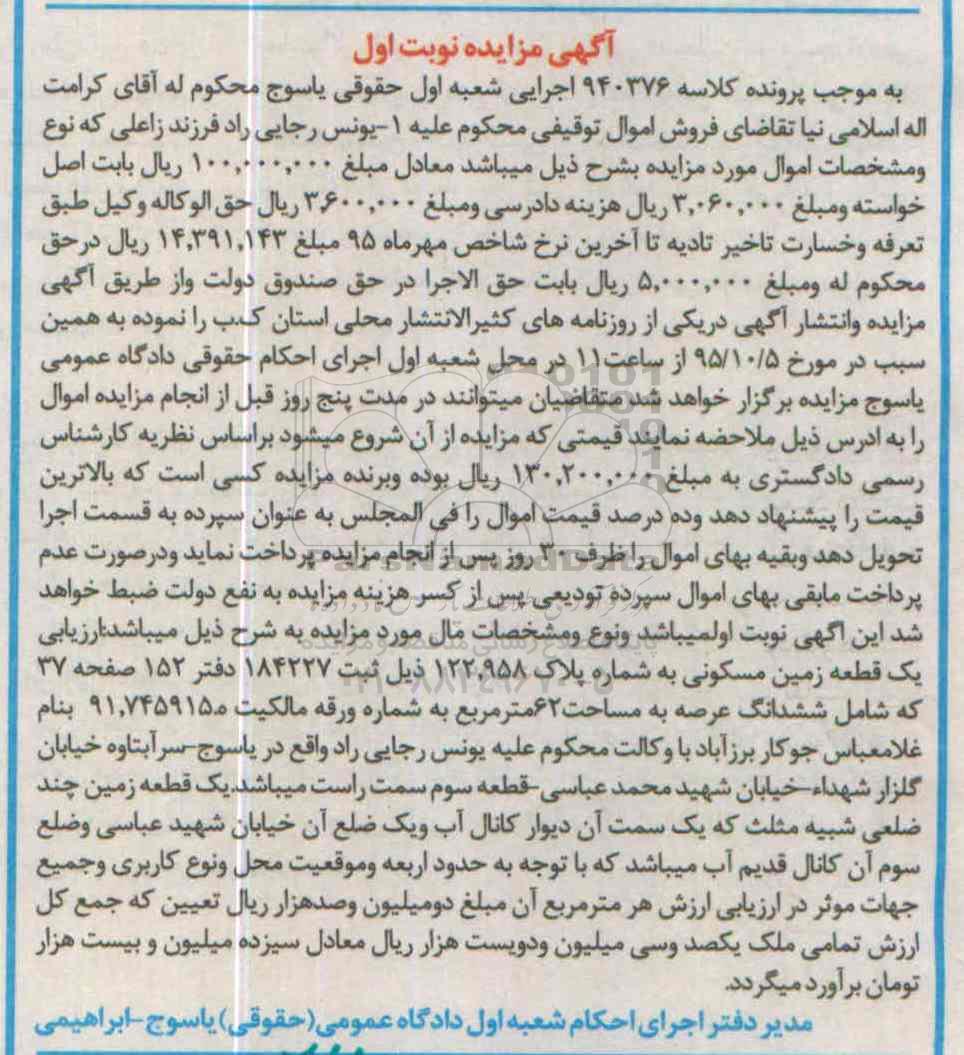 آگهی مزایده نوبت اول
به موجب پرونده کلاسه ۹۴۰۳۷۶ اجرایی شعبه اول حقوقی یاسوج محکوم له آقای کرامت
اله اسلامی نیا تقاضای فروش اموال توقیفی محکوم علیه ۱-یونس رجایی راد فرزند زاعلی که نوع
ومشخصات اموال مورد مزایده بشرح ذیل میباشد معادل مبلغ ۱۰۰,۰۰۰,۰۰۰ ریال بابت اصل
خواسته ومبلغ ۳,۰۶۰,۰۰۰ ریال هزینه دادرسی ومبلغ ۳,۶۰۰,۰۰۰ ریال حق الوکاله وکیل طبق
تعرفه وخسارت تاخیر تادیه تا آخرین نرخ شاخص مهرماه ۹۵ مبلغ ۱۴,۳۹۱,۱۴۳ ریال درحق
محکوم له ومبلغ ۵,۰۰۰,۰۰۰ ریال بابت حق الاجرا در حق صندوق دولت واز طریق آگهی
مزایده وانتشار آگهی دریکی از روزنامه های کثیرالانتشار محلی استان ک.ب را نموده به همین
سبب در مورخ ۹۵/۱۰/۵ از ساعت۱۱ در محل شعبه اول اجرای احکام حقوقی دادگاه عمومی
یاسوج مزایده برگزار خواهد شد متقاضیان میتوانند در مدت پنج روز قبل از انجام مزایده اموال
را به ادرس ذیل ملاحضه نمایند قیمتی که مزایده از آن شروع میشود براساس نظریه کارشناس
رسمی دادگستری به مبلغ ۱۳۰,۲۰۰,۰۰۰ ریال بوده وبرنده مزایده کسی است که بالاترین
قیمت را پیشنهاد دهد وده درصد قیمت اموال را فی المجلس به عنوان سپرده به قسمت اجرا
تحویل دهد وبقیه بهای اموال را ظرف ۳۰ روز پس از انجام مزایده پرداخت نماید ودرصورت عدم
پرداخت مابقی بهای اموال سپرده تودیعی پس از کسر هزینه مزایده به نفع دولت ضبط خواهد
شد این اگهی نوبت اولمیباشد ونوع ومشخصات مال مورد مزایده به شرح ذیل میباشد:ارزیابی
یک قطعه زمین مسکونی به شماره پلاک ۱۲۲,۹۵۸ ذیل ثبت ۱۸۴۲۲۷ دفتر ۱۵۲ صفحه ۳۷
که شامل ششدانگ عرصه به مساحت۶۲مترمربع به شماره ورقه مالکیت ۹۱,۷۴۵۹۱۵ه بنام
غلامعباس جوکار برزآباد با وکالت محکوم علیه یونس رجایی راد واقع در یاسوج-سرآبتاوه خیابان
گلزار شهداء-خیابان شهید محمد عباسی-قطعه سوم سمت راست میباشد.یک قطعه زمین چند
ضلعی شبیه مثلث که یک سمت آن دیوار کانال آب ویک ضلع آن خیابان شهید عباسی وضلع
سوم آن کانال قدیم آب میباشد که با توجه به حدود اربعه وموقعیت محل ونوع کاربری وجمیع
جهات موثر در ارزیابی ارزش هر مترمربع آن مبلغ دومیلیون وصدهزار ریال تعیین که جمع کل
ارزش تمامی ملک یکصد وسی میلیون ودویست هزار ریال معادل سیزده میلیون و بیست هزار
تومان برآورد میگردد.
مدیر دفتر اجرای احکام شعبه اول دادگاه عمومی(حقوقی) یاسوج -ابراهیمی